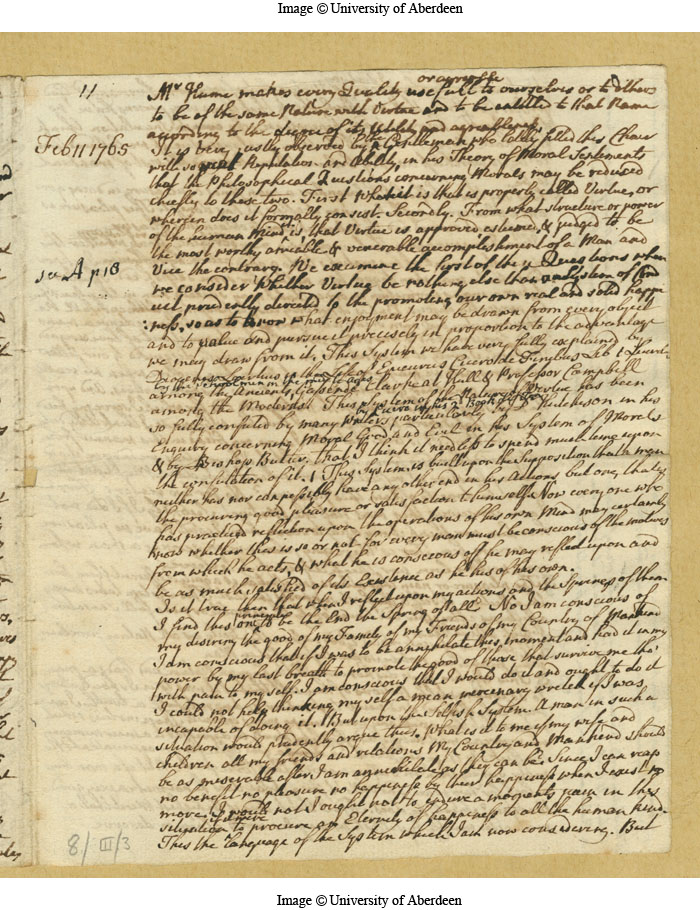 Image © University of Aberdeen
11
or agreeable
Mr Hume makes every Quality usefull to ourselves or to others
to be of the same Nature with Virtue and to be entitled to that Name
according to the degree of its Utility and agreeableness
Feb 11 1765
It is very justly observed by a Gentleman who lately filled this Chair
with so great Reputation and Ability in his Theory of Moral Sentiments
that the Philosophical Questions concerning Morals may be reduced
chiefly to these two. First What it is that is properly called Virtue, or
wherein does it formally consist. Secondly. From what structure or power
of the human Mind is it, that Virtue is approved esteemd & judged to be
the most worthy amiable & venerable accomplishment of a Man and
Vice the contrary. We examine the first of these Questions when
we consider whether Virtue be nothing else than a System of Cond
uct prudently directed to the promoting our own real and solid happi
ness, so as to know what enjoyment may be drawn from every object
and to value and pursue it precisely in proportion to the advantage
we may draw from it. This System we have very fully explained by
in the of Epicurus
among the Ancients, Gassendi & Professor Campbell
among the Moderns. This System of Virtue has been
so fully confuted by many Writers particularly by Dr Hutcheson in his
Enquiry concerning Moral Good and Evil in his System of Morals
& by Bishop Butler, that I think it needless to spend much time upon
the confutation of it. This System is built upon the Supposition that a man
neither has nor can possibly have any other end in his Actions but one, that is
the procuring good pleasure or satisfaction to himself. Now every one who
has practiced reflection upon the operations of his own Mind may certainly
know whether this is so or not for every man must be conscious of the motives
from which he acts, & what he is conscious off he may reflect upon and
be as much satisfied of its Existence as he his of his own.
Is it true then that when I reflect upon my actions and the Springs of them
I find this one to be the End the Spring of all. No I am conscious of
my desiring the good of my Family of my Friends of my Country of Mankind
I am conscious that if I was to be annihilate this moment and had it in my
power by my last breath to promote the good of those that survive me tho
with pain to my self. I am conscious that I would do it and ought to do it
I could not help thinking my self a mean mercenary wretch if I was
incapable of doing it. But upon this Selfish System a man in such a
situation would prudently argue thus. What is it to me if my wife and
children all my friends and relations My Country and Mankind should
be as miserable after I am annihilate as they can be. Since I can reap
no benefit no pleasure no happiness by their happiness when I exist no
more. I would not I ought not to endure a moments pain in this
situation to procure an Eternity of happiness to all the human kind.
This the Language of the System which I am now considering. But
8/ III/3
Image © University of Aberdeen